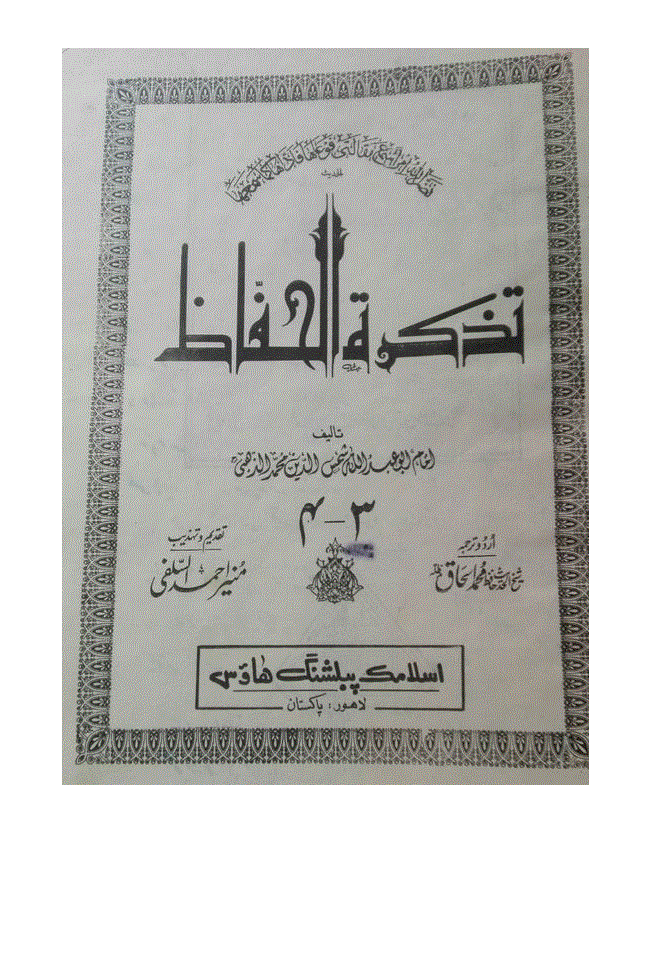 نضر اللہ امرأ سمع مقالتی فوعاها فأداها كما سمعها
الحدیث
تذكرة الحفّاظ
تالیف
امام ابو عبد اللہ شمس الدین محمد الذھبی
۳ – ۴
اُردو ترجمہ
شیخ الحدیث حافظ محمد اسحاق
تقدیم و تہذیب
منیر احمد السلفی
اسلامک پبلشنگ ھاؤس
لاھور : پاکستان